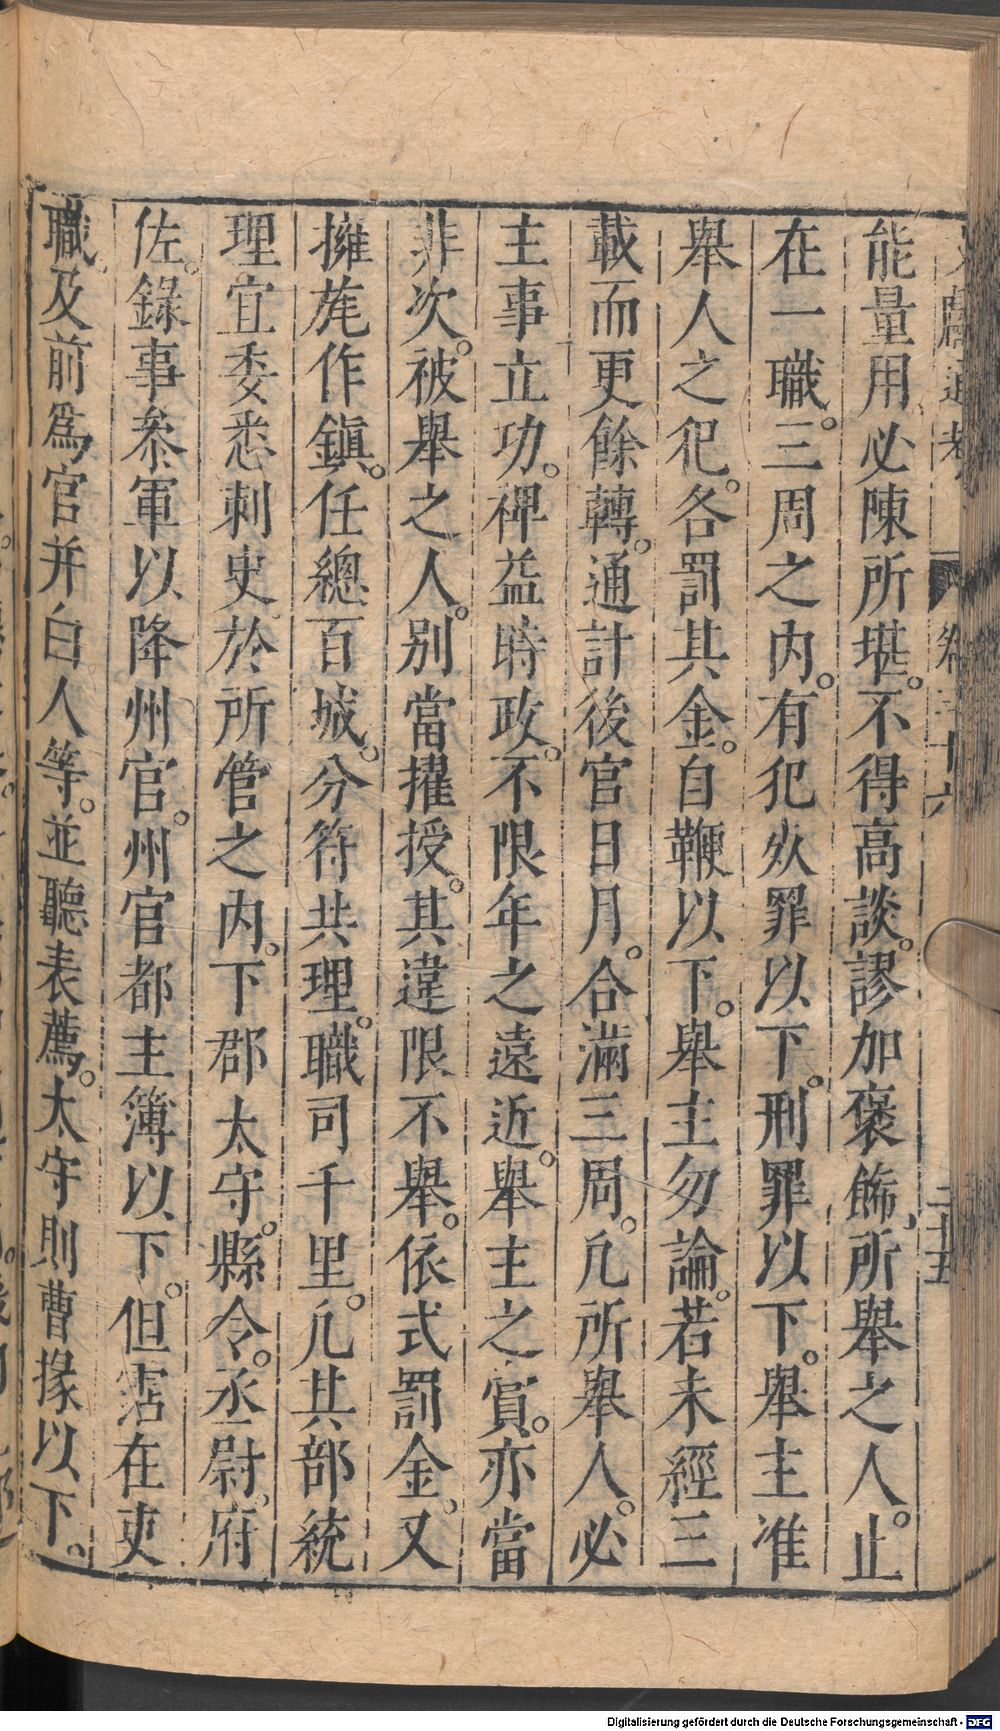 文獻通考 卷三十六 二十五
能量用必陳所堪。不得高談。謬加褒飾。所舉之人。止
在一職。三周之內。有犯死罪以下。刑罪以下。舉主准
舉人之犯。各罰其金。自鞭以下。舉主勿論。若未經三
載而更餘轉。通計後官日月。合滿三周。凡所舉人。必
主事立功。裨益時政。不限年之遠近。舉主之賞。亦當
非次。被舉之人。別當擢授。其違限不舉。依式罰金。又
擁旄作鎭。任總百城。分符共理。職司千里。凡其部統
理宜委悉刺史於所管之內。下郡太守。縣令。丞尉。府
佐。錄事叅軍以降州官。州官都主簿以下。但霑在吏
職。及前爲官并白人等。並聽表薦。太守則曹掾以下。
Digitalisierung gefördert durch die Deutsche Forschungsgemeinschaft - DFG